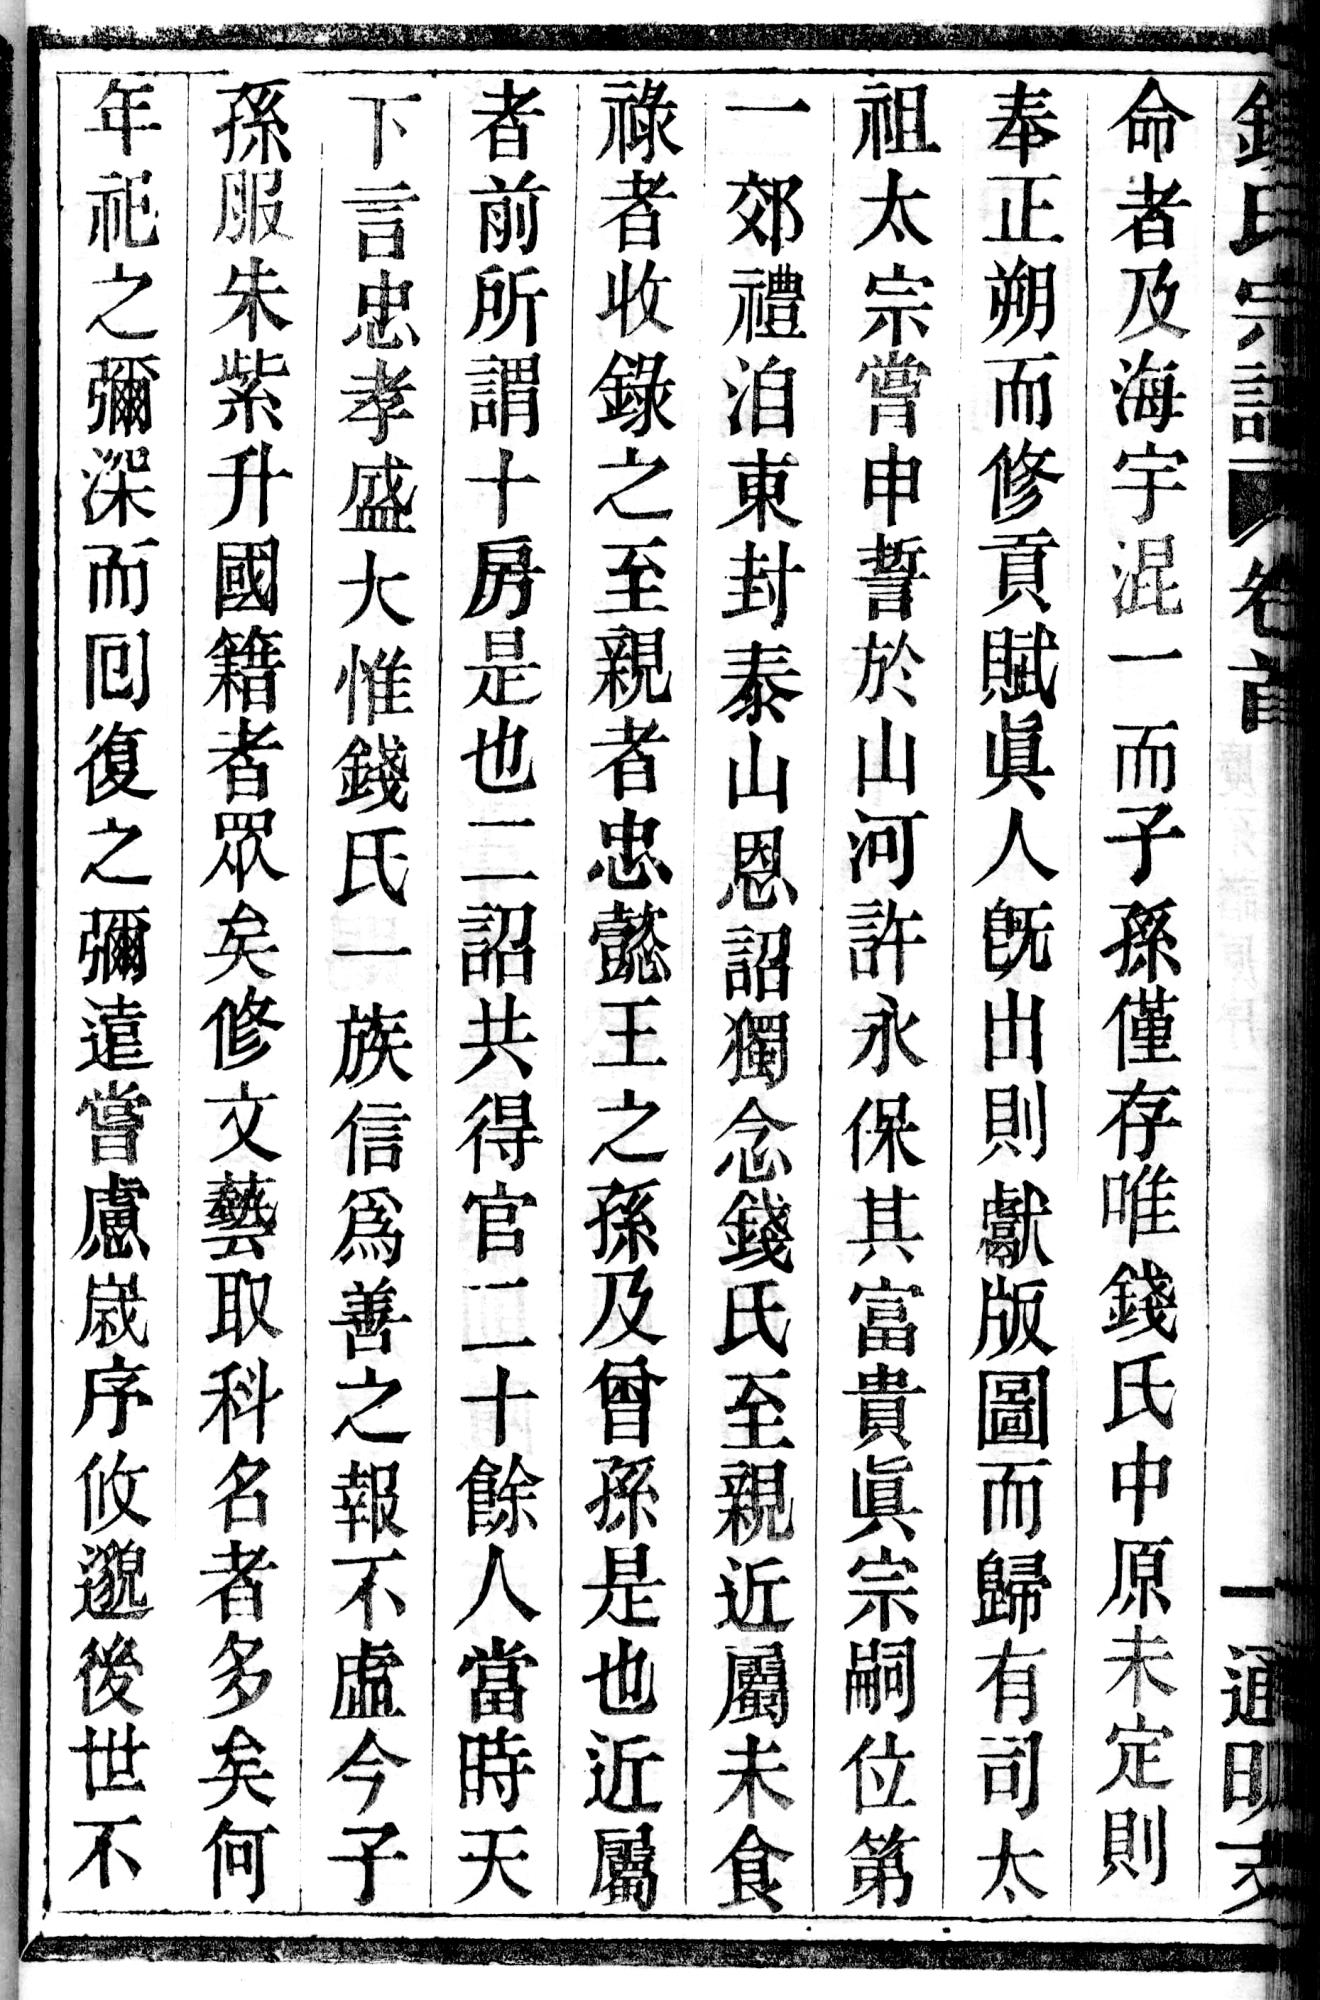 錢氏宗譜 卷首 一 通明
命者及海宇混一而子孫僅存唯錢氏中原未定則
奉正朔而修貢賦眞人旣出則獻版圖而歸有司太
祖太宗嘗申誓於山河許永保其富貴眞宗嗣位第
一郊禮洎東封泰山恩詔獨念錢氏至親近屬未食
祿者收錄之至親者忠懿王之孫及曾孫是也近屬
者前所謂十房是也二詔共得官二十餘人當時天
下言忠孝盛大惟錢氏一族信爲善之報不虛今子
孫服朱紫升國籍者眾矣修文藝取科名者多矣何
年祀之彌深而囘復之彌遠嘗慮嵗序攸邈後世不